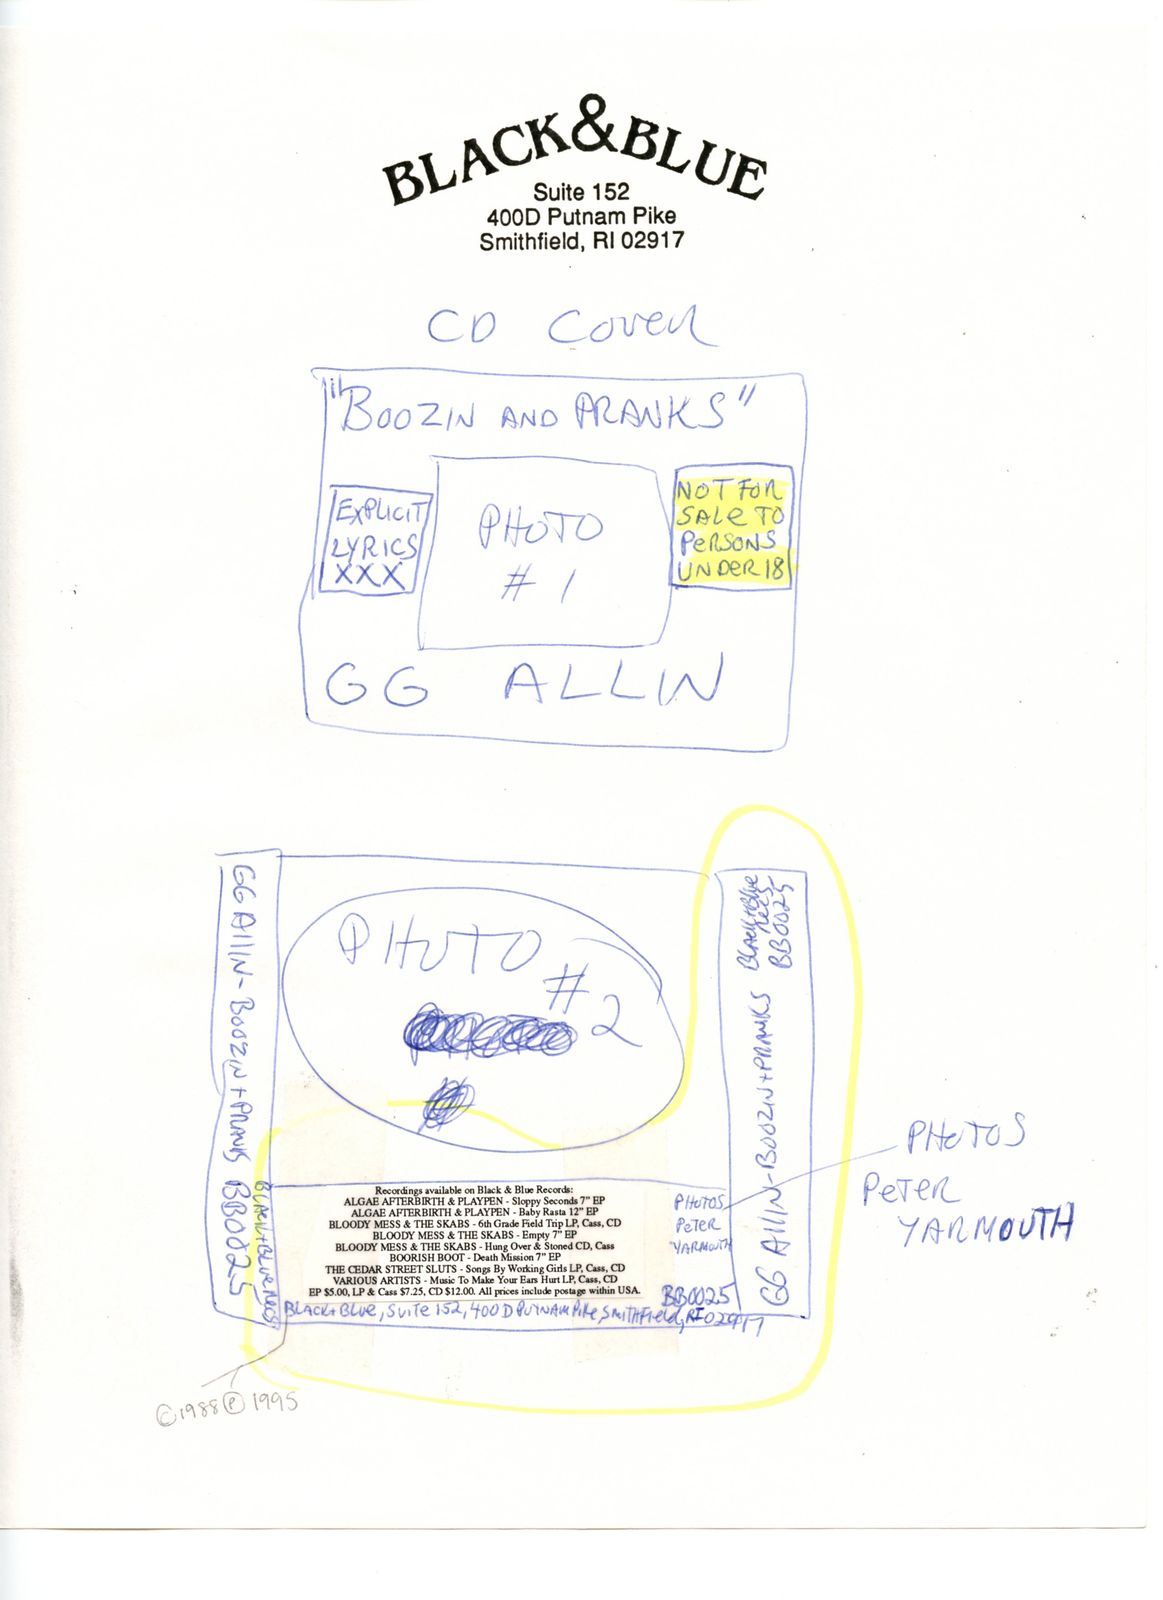 BLACK&BLUE
Suite 152
400D Putnam Pike
Smithfield, RI 02917
CD Cover
"BOOZIN AND PRANKS"
EXPLICIT
LYRICS
XXX
PHOTO
# 1
NOT FOR
SALE TO
PERSONS
UNDER 18
GG ALLIN
GG AllIN - BOOZIN + PRANKS BB0025
BLACK + BLUE RECS
PHOTO
# 2
GG AllIN - BOOZIN + PRANKS
BLACK + BLUE
RECS
BB0025
PHOTOS
PETER
YARMOUTH
Recordings available on Black & Blue Records:
ALGAE AFTERBIRTH & PLAYPEN - Sloppy Seconds 7" EP
ALGAE AFTERBIRTH & PLAYPEN - Baby Rasta 12" EP
BLOODY MESS & THE SKABS - 6th Grade Field Trip LP, Cass, CD
BLOODY MESS & THE SKABS - Empty 7" EP
BLOODY MESS & THE SKABS - Hung Over & Stoned CD, Cass
BOORISH BOOT - Death Mission 7" EP
THE CEDAR STREET SLUTS - Songs By Working Girls LP, Cass, CD
VARIOUS ARTISTS - Music To Make Your Ears Hurt LP, Cass, CD
EP $5.00, LP & Cass $7.25, CD $12.00. All prices include postage within USA.
PHOTOS
PETER
YARMOUTH
BB0025
BLACK + BLUE, SUITE 152, 400 D PUTNAM PIKE, SMITHFIELD, RI 02917
©1988 ℗ 1995